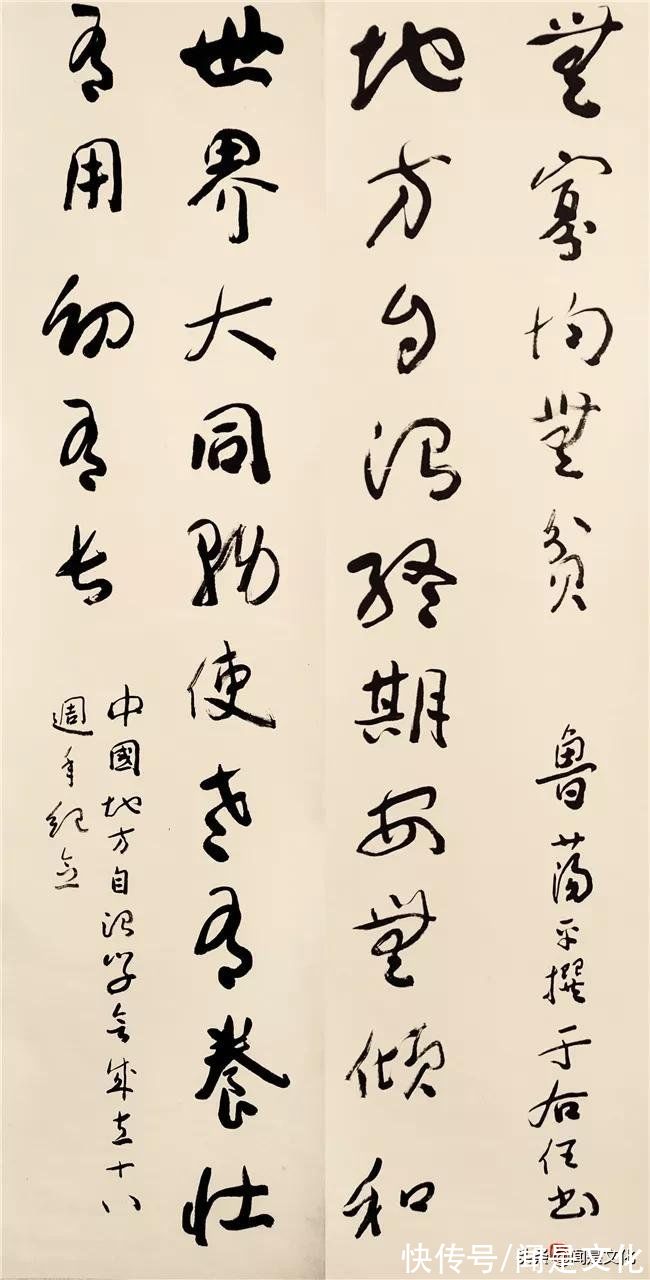 地方自治終期安無傾和
無寡均無貧
魯蕩平撰于右任書
世界大同使老有養壯
有用幼有長
中國地方自治學會成立十八
週年紀念
快传号/闻是文化